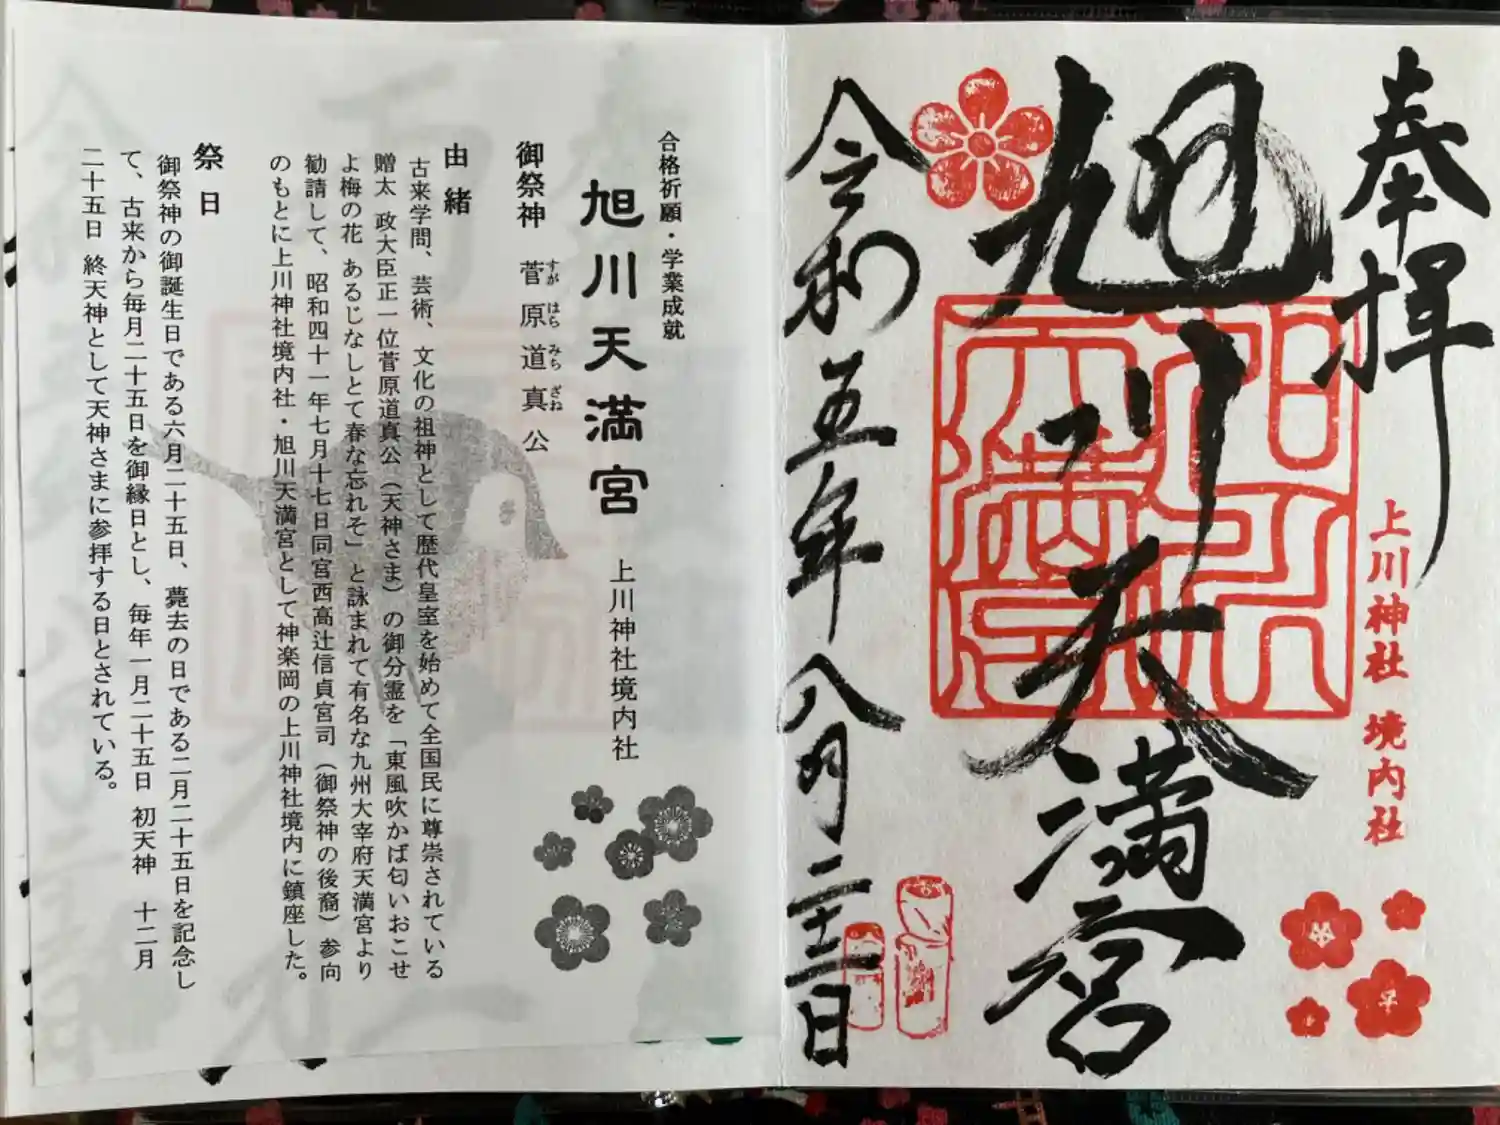 奉拝
上川神社 境内社
旭川天満宮
令和五年八月二十二日
合格祈願・学業成就
旭川天満宮 上川神社境内社
御祭神 菅原道真公
すがはらみちざね
由緒
古来学問、芸術、文化の祖神として歴代皇室を始めて全国民に尊崇されている
贈太 政大臣正一位菅原道真公(天神さま)の御分霊を「東風吹かば匂いおこせ
よ梅の花 あるじなしとて春な忘れそ」と詠まれて有名な九州大宰府天満宮より
勧請して、昭和四十一年七月十七日同宮西高辻信貞宮司(御祭神の後裔)参向
のもとに上川神社境内社・旭川天満宮として神楽岡の上川神社境内に鎮座した。
祭日
御祭神の御誕生日である六月二十五日、薨去の日である二月二十五日を記念し
て、古来から毎月二十五日を御縁日とし、毎年一月二十五日 初天神 十二月
二十五日 終天神として天神さまに参拝する日とされている。